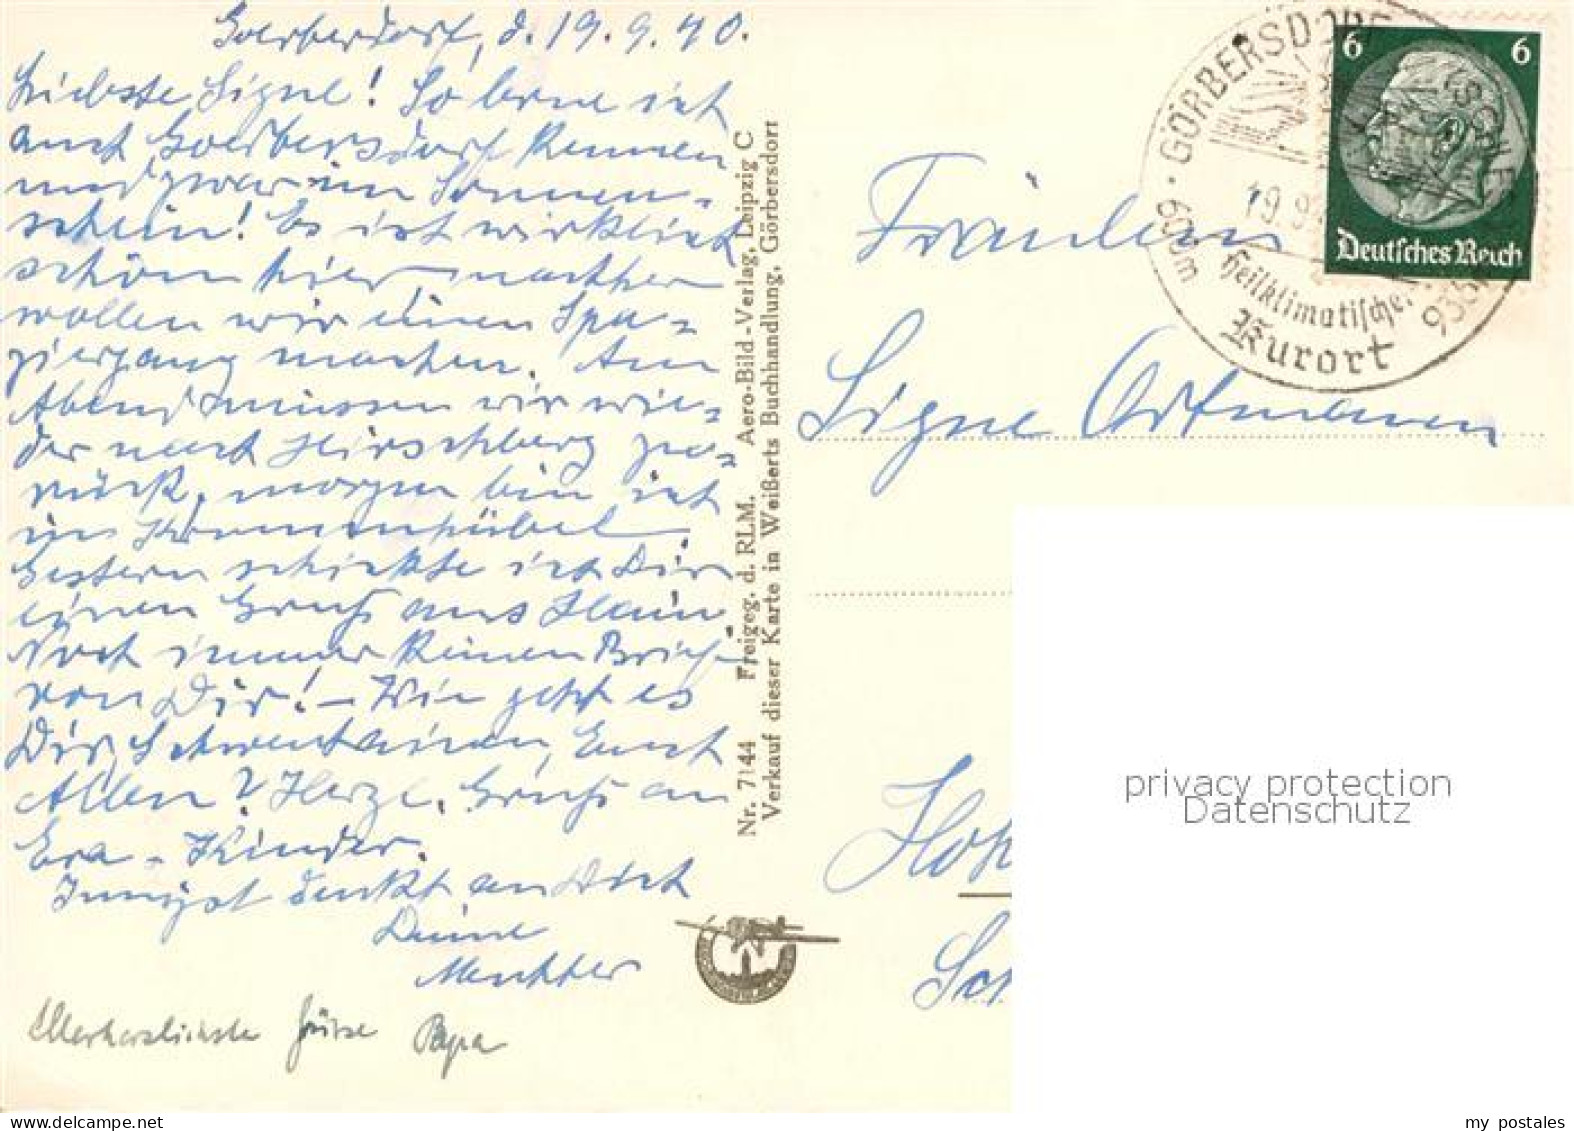 Goerbersdorf, d. 19.9.40.
Liebste Signe! So lerne ich
auch Goerbersdorf kennen
und zwar im Sonnen-
schein! Es ist wirklich
schön hier, nachher
wollen wir einen Spa-
ziergang machen. Am
Abend müssen wir wie-
der nach Hirschberg zu-
rück, morgen bin ich
in Krummhübel.
Gestern schickte ich Dir
einen Gruß aus Hain
Noch immer keinen Brief
von Dir! – Wie geht es
Dir, Euch
Allen? Herzl. Gruß an
Eva - Kinder.
Innigst denkt an Dich
Deine
Mutter
Allerherzlichste Grüsse Papa
Nr. 7144 Freigeg. d. RLM. Aero-Bild-Verlag, Leipzig C
Verkauf dieser Karte in Weißerts Buchhandlung, Görbersdorf
GÖRBERSDORF
600m
19.9.4
Heilklimatischer
Kurort
6 6
Deutsches Reich
Fräulein
Signe Ortmann
Hoh
Sch
privacy protection
Datenschutz
my postales